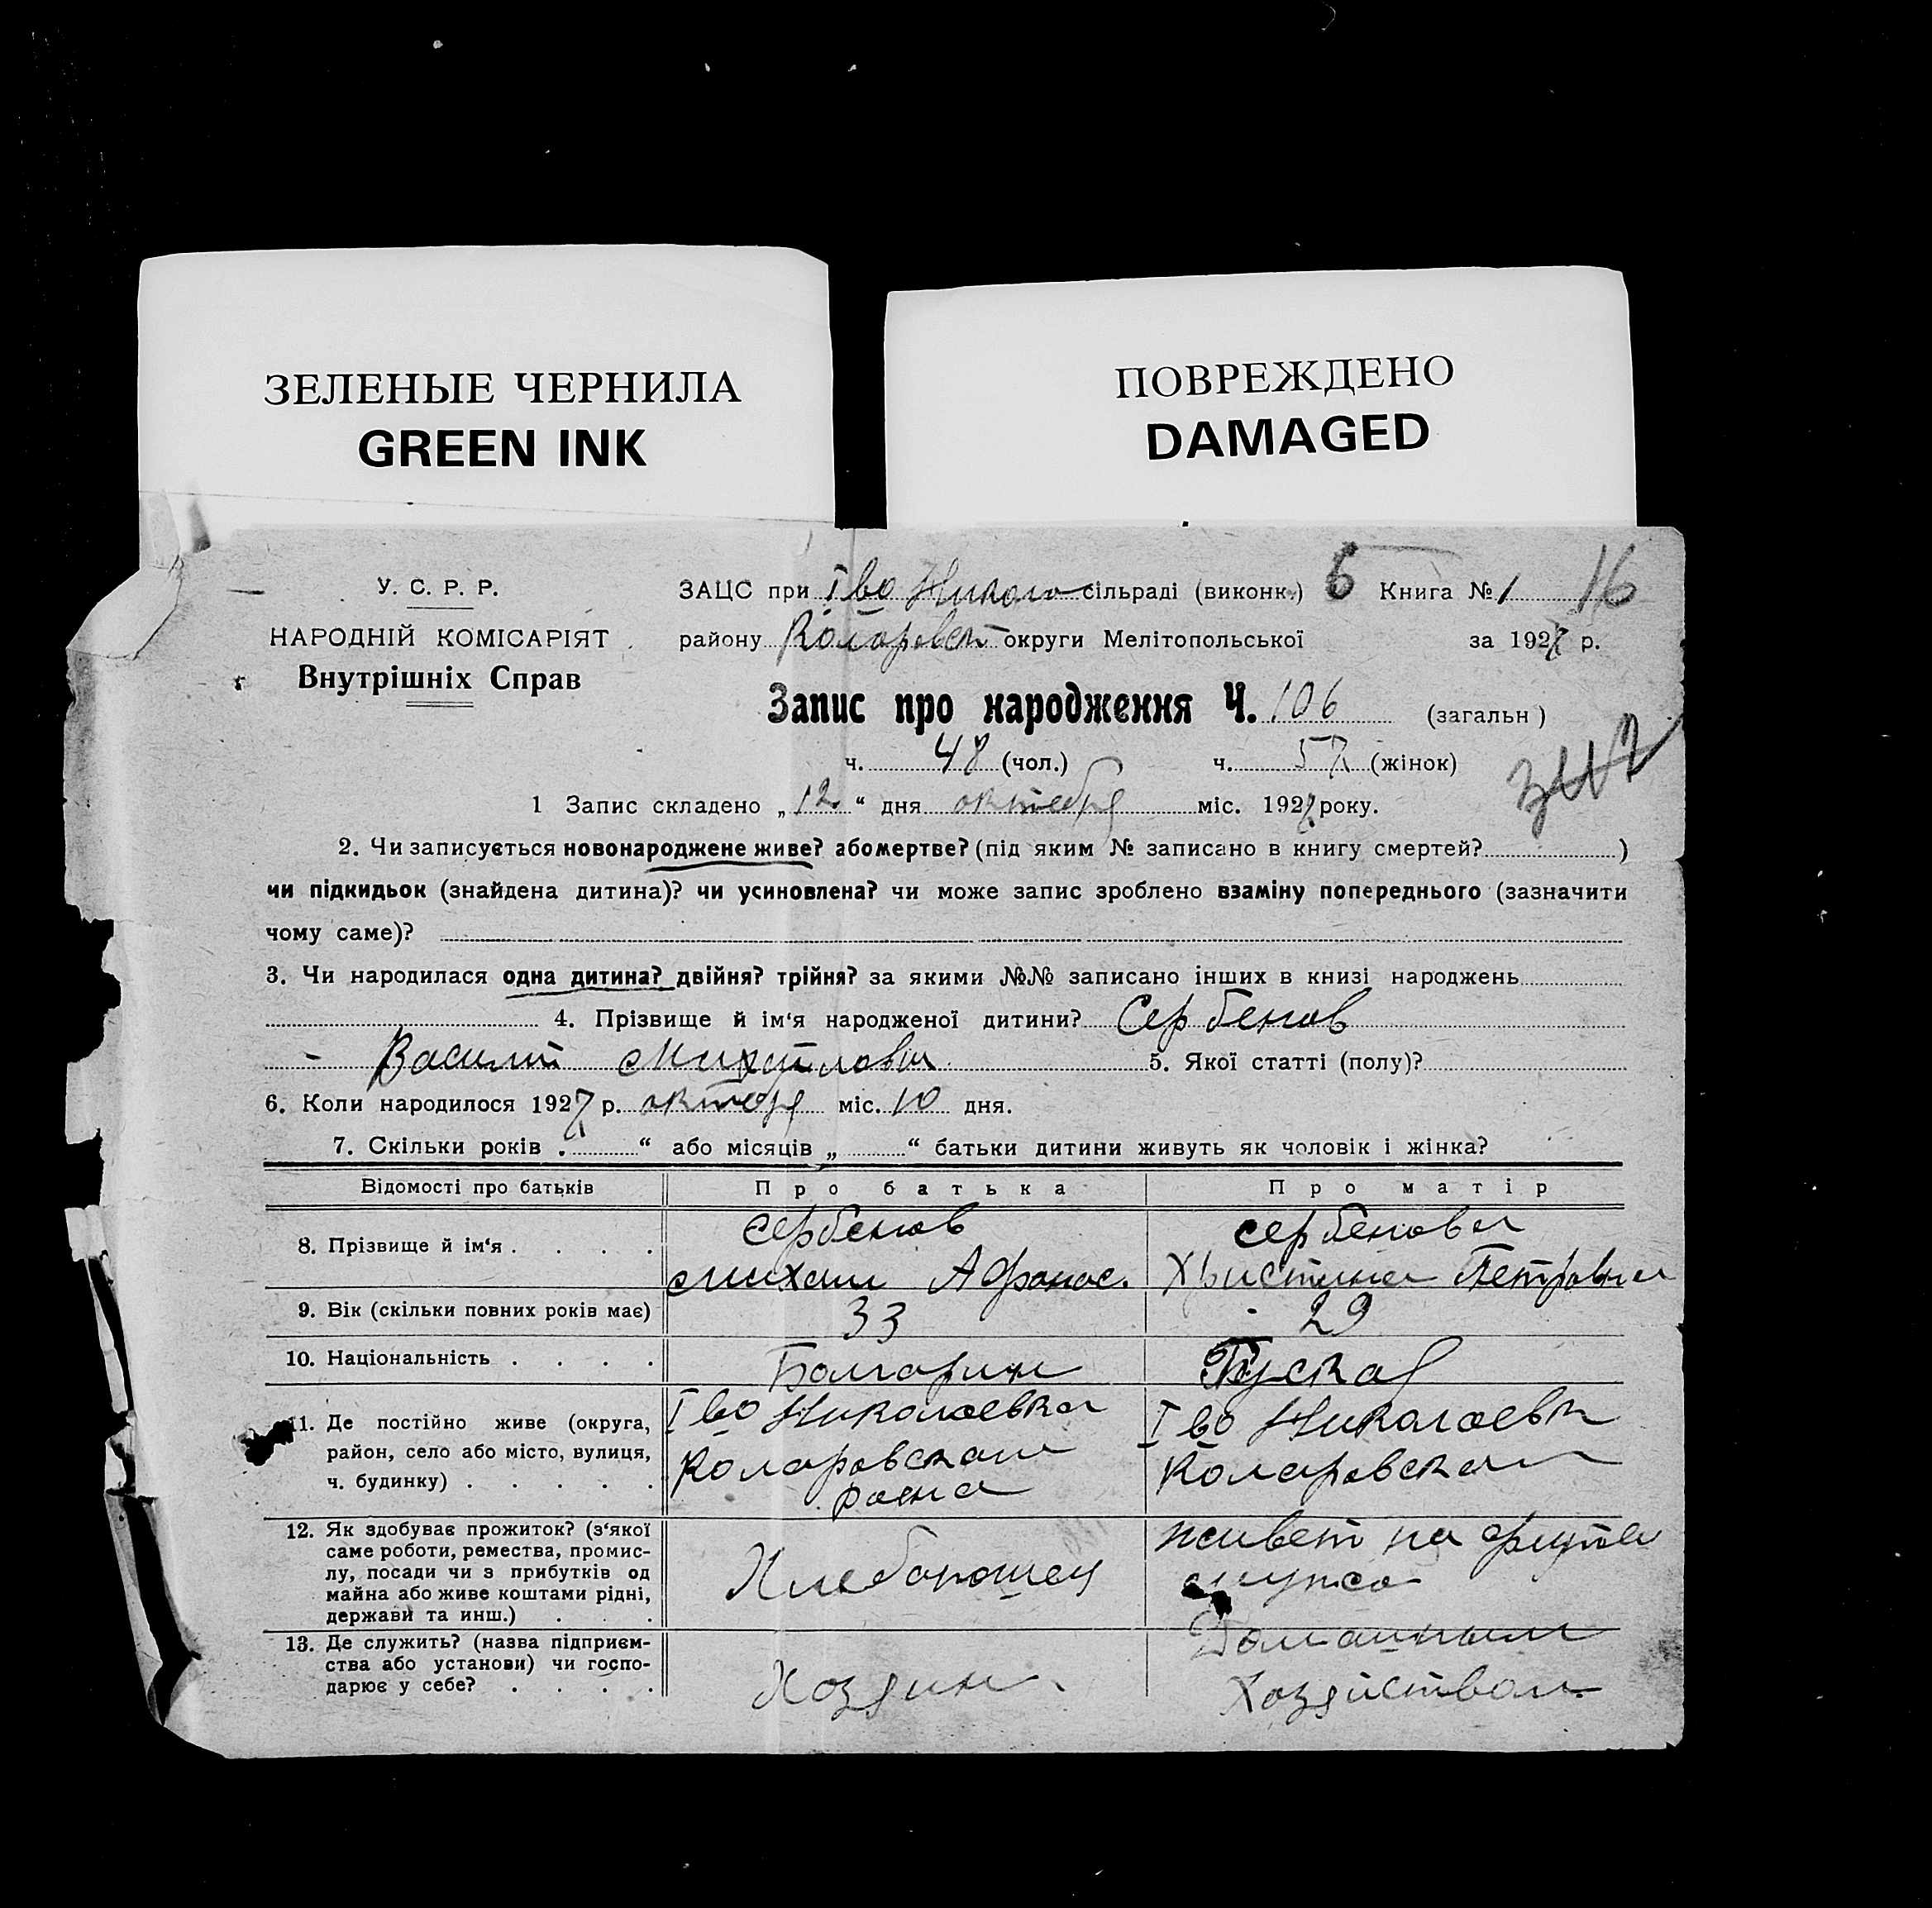 ЗЕЛЕНЫЕ ЧЕРНИЛА
GREEN INK
ПОВРЕЖДЕНО
DAMAGED
У. С. Р. Р.
НАРОДНІЙ КОМІСАРІЯТ
Внутрішніх Справ
ЗАЦС при I во Николо сільраді (виконк.) 6 Книга № 1 16
району Коларовск округи Мелітопольської за 1927 р.
Запис про народження Ч. 106 (загальн)
ч. 48 (чол.) ч. 57 (жінок)
1 Запис складено „12“ дня октебря міс. 1927 року.
2. Чи записується новонароджене живе? або мертве? (під яким № записано в книгу смертей? )
чи підкидьок (знайдена дитина)? чи усиновлена? чи може запис зроблено взаміну попереднього (зазначити
чому саме)?
3. Чи народилася одна дитина? двійня? трійня? за якими №№ записано інших в книзі народжень
4. Прізвище й ім‘я народженої дитини? Сербенов
- Василий Михайлович 5. Якої статті (полу)?
6. Коли народилося 1927 р. октебря міс. 10 дня.
7. Скільки років . “ або місяців „ “ батьки дитини живуть як чоловік і жінка?
Відомості про батьків Про батька Про матір
8. Прізвище й ім‘я . . . . Сербенов Сербенова
Михаил Афанас. Христина Петровна
9. Вік (скільки повних років має) 33 29
10. Національність . . . . Болгарин Руская
11. Де постійно живе (округа, I во Николаевка I во Николаевк
район, село або місто, вулиця, Коларовскаго Коларовскаго
ч. будинку) . . . . . раена
12. Як здобуває прожиток? (з‘якої живет на
саме роботи, ремества, промис- мужа
лу, посади чи з прибутків од Хлеборошец
майна або живе коштами рідні,
держави та инш.) . . .
13. Де служить? (назва підприєм- Домашным
ства або установи) чи госпо- Хозяин. Хозяйством.
дарює у себе? . . . .